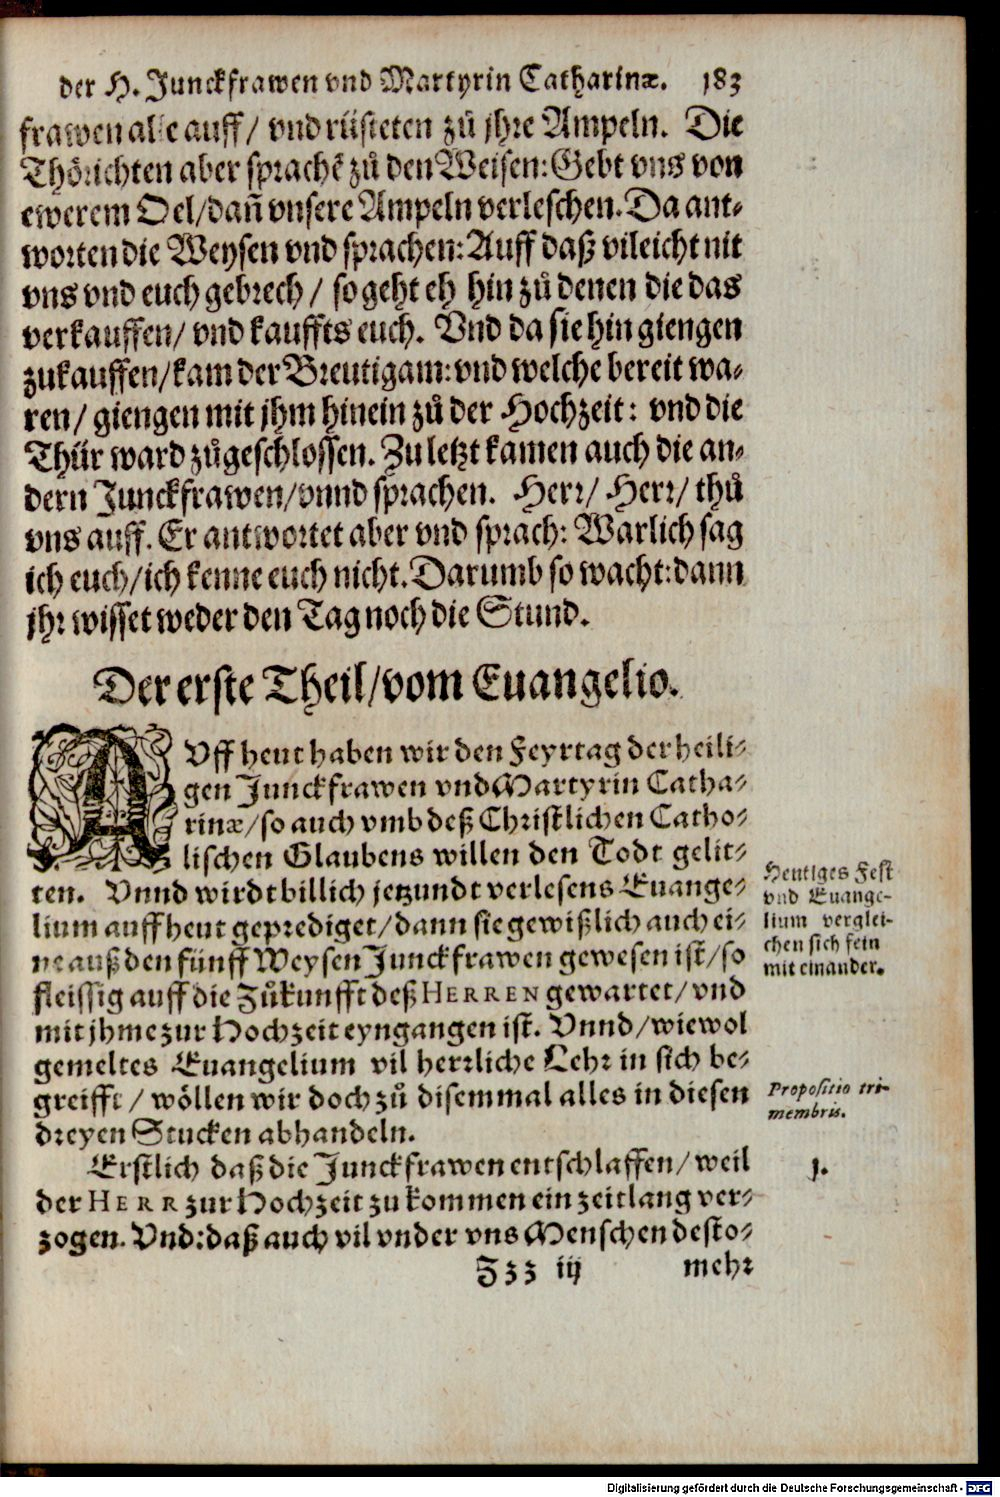 der H. Junckfrawen vnd Martyrin Catharinæ. 183
frawen alle auff/ vnd rüsteten zů jhre Ampeln. Die
Thörichten aber sprachẽ zů den Weisen: Gebt vns von
ewerem Oel/dañ vnsere Ampeln verleschen. Da ant-
worten die Weysen vnd sprachen: Auff daß vileicht nit
vns vnd euch gebrech/ so geht eh hin zů denen die das
verkauffen/ vnd kauffts euch. Vnd da sie hin giengen
zukauffen/kam der Breutigam: vnd welche bereit wa-
ren/ giengen mit jhm hinein zů der Hochzeit: vnd die
Thür ward zůgeschlossen. Zu letzt kamen auch die an-
dern Junckfrawen/vnnd sprachen. Herr/ Herr/ thů
vns auff. Er antwortet aber vnd sprach: Warlich sag
ich euch/ich kenne euch nicht. Darumb so wacht: dann
jhr wisset weder den Tag noch die Stund.
Der erste Theil/vom Euangelio.
AVff heut haben wir den Feyrtag der heili-
gen Junckfrawen vnd Martyrin Catha-
rinæ/so auch vmb deß Christlichen Catho-
lischen Glaubens willen den Todt gelit-
ten. Vnnd wirdt billich jetzundt verlesens Euange-
lium auff heut geprediget/dann sie gewißlich auch ei-
ne auß den fünff Weysen Junckfrawen gewesen ist/so
fleissig auff die Zůkunfft deß HERREN gewartet/vnd
mit jhme zur Hochzeit eyngangen ist. Vnnd/wiewol
gemeltes Euangelium vil herrliche Lehr in sich be-
greifft/ wöllen wir doch zů disemmal alles in diesen
dreyen Stucken abhandeln.
Heutiges Fest
vnd Euange-
lium verglei-
chen sich fein
mit einander.
Propositio tri-
membris.
Erstlich daß die Junckfrawen entschlaffen/weil
der HERR zur Hochzeit zu kommen ein zeitlang ver-
zogen. Vnd: daß auch vil vnder vns Menschen desto-
1.
Zzz iij mehr
Digitalisierung gefördert durch die Deutsche Forschungsgemeinschaft - DFG